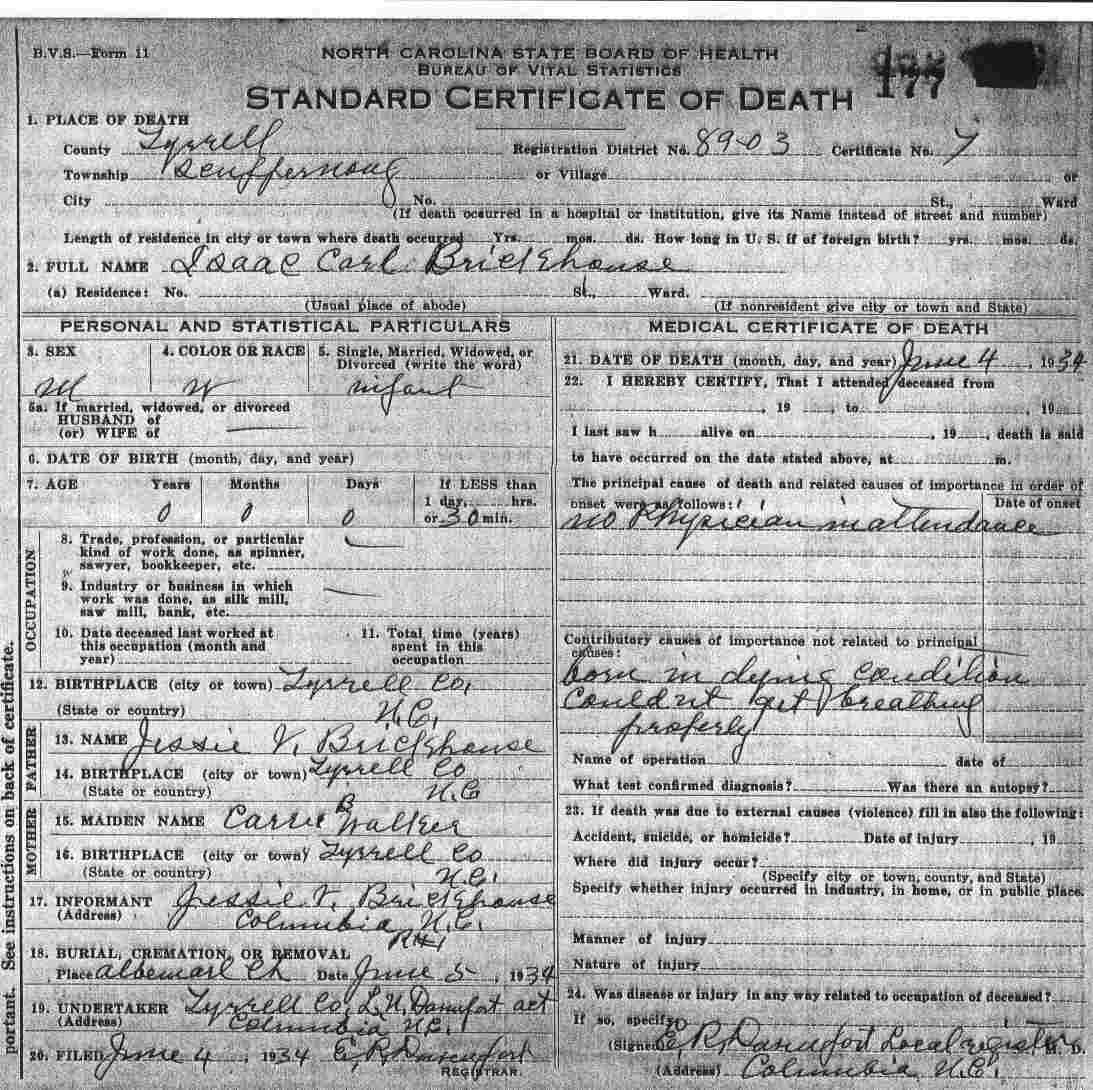 B.V.S.—Form 11
NORTH CAROLINA STATE BOARD OF HEALTH
BUREAU OF VITAL STATISTICS
STANDARD CERTIFICATE OF DEATH
177
1. PLACE OF DEATH
County Tyrrell Registration District No. 89-03 Certificate No. 7
Township Scuppernong or Village or
City No. St., Ward
(If death occurred in a hospital or institution, give its Name instead of street and number)
Length of residence in city or town where death occurred Yrs. mos. ds. How long in U. S. if of foreign birth? yrs. mos. ds.
2. FULL NAME Isaac Carl Brickhouse
(a) Residence: No. St., Ward.
(Usual place of abode) (If nonresident give city or town and State)
PERSONAL AND STATISTICAL PARTICULARS
3. SEX 4. COLOR OR RACE 5. Single, Married, Widowed, or Divorced (write the word)
M W infant
5a. If married, widowed, or divorced
HUSBAND of
(or) WIFE of
6. DATE OF BIRTH (month, day, and year)
7. AGE Years Months Days If LESS than
1 day, hrs.
0 0 0 or 30 min.
OCCUPATION
8. Trade, profession, or particular
kind of work done, as spinner,
sawyer, bookkeeper, etc.
9. Industry or business in which
work was done, as silk mill,
saw mill, bank, etc.
10. Date deceased last worked at
this occupation (month and
year)
11. Total time (years)
spent in this
occupation
12. BIRTHPLACE (city or town) Tyrrell Co,
(State or country) N.C.
FATHER
13. NAME Jessie V. Brickhouse
14. BIRTHPLACE (city or town) Tyrrell Co
(State or country) N.C
MOTHER
15. MAIDEN NAME Carrie B Walker
16. BIRTHPLACE (city or town) Tyrrell Co
(State or country) N.C.
17. INFORMANT Jessie V. Brickhouse
(Address) Columbia N.C.
18. BURIAL, CREMATION, OR REMOVAL
Place Albemarl Ch Date June 5, 1934
19. UNDERTAKER Tyrrell Co, act
(Address) Columbia N.C.
20. FILED June 4, 1934 E R
REGISTRAR.
MEDICAL CERTIFICATE OF DEATH
21. DATE OF DEATH (month, day, and year) June 4, 1934
22. I HEREBY CERTIFY, That I attended deceased from
, 19 , to , 19
I last saw h alive on , 19 , death is said
to have occurred on the date stated above, at m.
The principal cause of death and related causes of importance in order of
onset were as follows: Date of onset
no Physician in attendance
Contributory causes of importance not related to principal
causes:
born in dying condition
Couldn't get breathing
properly
Name of operation date of
What test confirmed diagnosis? Was there an autopsy?
23. If death was due to external causes (violence) fill in also the following:
Accident, suicide, or homicide? Date of injury , 19
Where did injury occur?
(Specify city or town, county, and State)
Specify whether injury occurred in industry, in home, or in public place.
Manner of injury
Nature of injury
24. Was disease or injury in any way related to occupation of deceased?
If so, specify
(Signed) E, R, Local register M. D.
(Address) Columbia N.C.
portant. See instructions on back of certificate.